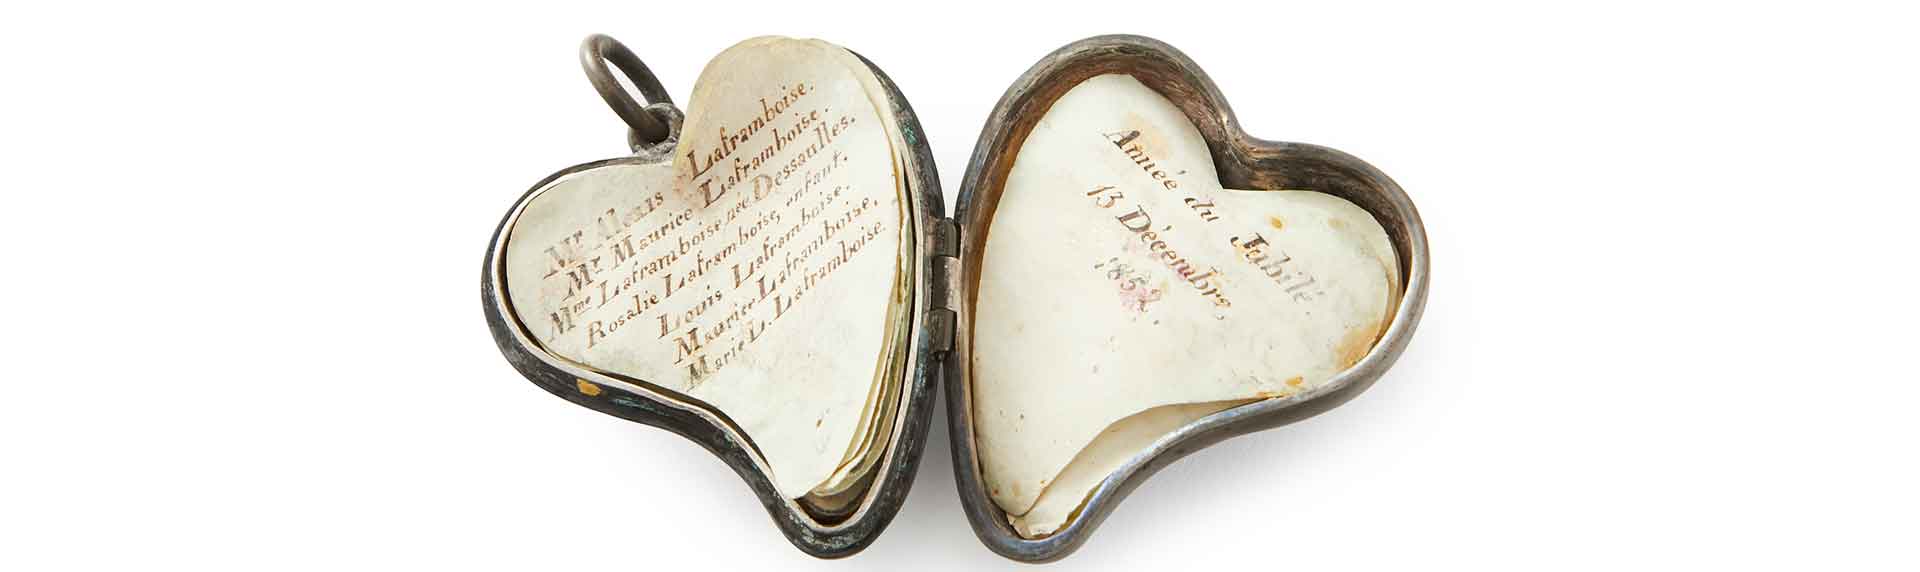 Mr. Alexis Laframboise.
Mr. Maurice Laframboise.
Mme. Laframboise née Dessaulles.
Rosalie Laframboise, enfant.
Louis Laframboise.
Maurice Laframboise.
Marie L. Laframboise.
Année du Jubilé
13 Décembre,
1852.